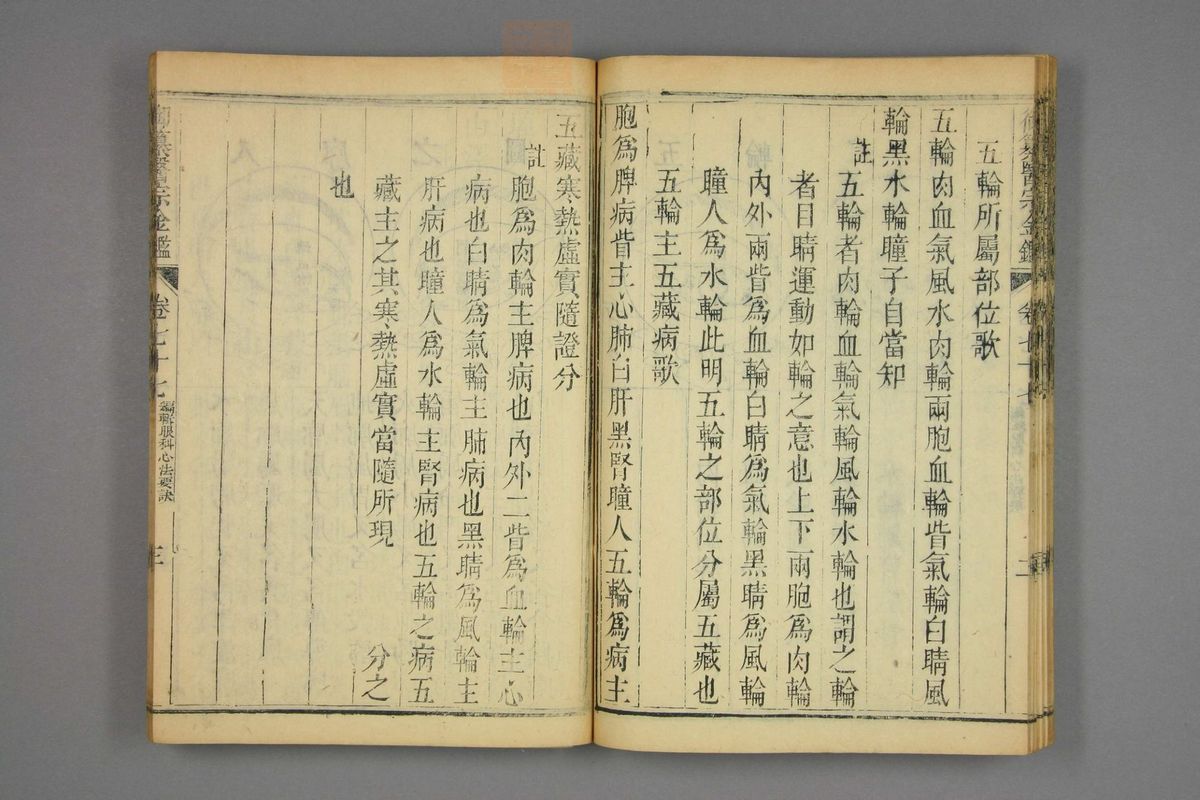 御纂醫宗金鑑 卷七十七 二
五輪所屬部位歌
五輪肉血氣風水肉輪兩胞血輪眥氣輪白睛風
輪黑水輪瞳子自當知
註
五輪者肉輪血輪氣輪風輪水輪也謂之輪
者目睛運動如輪之意也上下兩胞爲肉輪
內外兩眥爲血輪白睛爲氣輪黑睛爲風輪
瞳人爲水輪此明五輪之部位分屬五藏也
五輪主五藏病歌
胞爲脾病眥主心肺白肝黑腎瞳人五輪爲病主
五藏寒熱虛實隨證分
註
胞爲肉輪主脾病也內外二眥爲血輪主心
病也白睛爲氣輪主肺病也黑睛爲風輪主
肝病也瞳人爲水輪主腎病也五輪之病五
藏主之其寒熱虛實當隨所現 分之
也
御纂醫宗金鑑 卷七十七 編輯眼科心法要訣 三